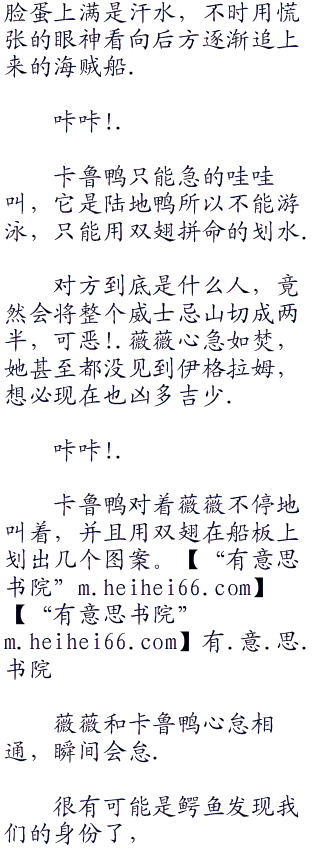 脸蛋上满是汗水，不时用慌
张的眼神看向后方逐渐追上
来的海贼船.
咔咔!.
卡鲁鸭只能急的哇哇
叫，它是陆地鸭所以不能游
泳，只能用双翅拼命的划水.
对方到底是什么人，竟
然会将整个威士忌山切成两
半，可恶!.薇薇心急如焚，
她甚至都没见到伊格拉姆，
想必现在也凶多吉少.
咔咔!.
卡鲁鸭对着薇薇不停地
叫着，并且用双翅在船板上
划出几个图案。【“有意思
书院”m.heihei66.com】
【“有意思书院”
m.heihei66.com】有.意.思.
书院
薇薇和卡鲁鸭心怠相
通，瞬间会怠.
很有可能是鳄鱼发现我
们的身份了，